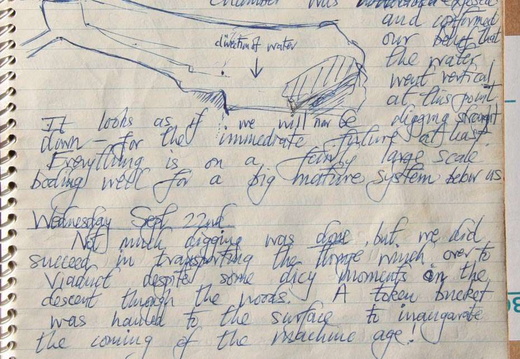 chamber was exposed
and confirmed
our belief that
the water
went vertical
at this point
direction of water
It looks as if we will now be digging straight
down - for the immediate future at least.
Everything is on a fairly large scale
boding well for a big mature system below us
Wednesday Sept 22nd
Not much digging was done but we did
succeed in transporting the things which over to
Viaduct despite some dicy moments on the
descent through the woods. A token bucket
was hauled to the surface to inaugurate
the coming of the machine age!